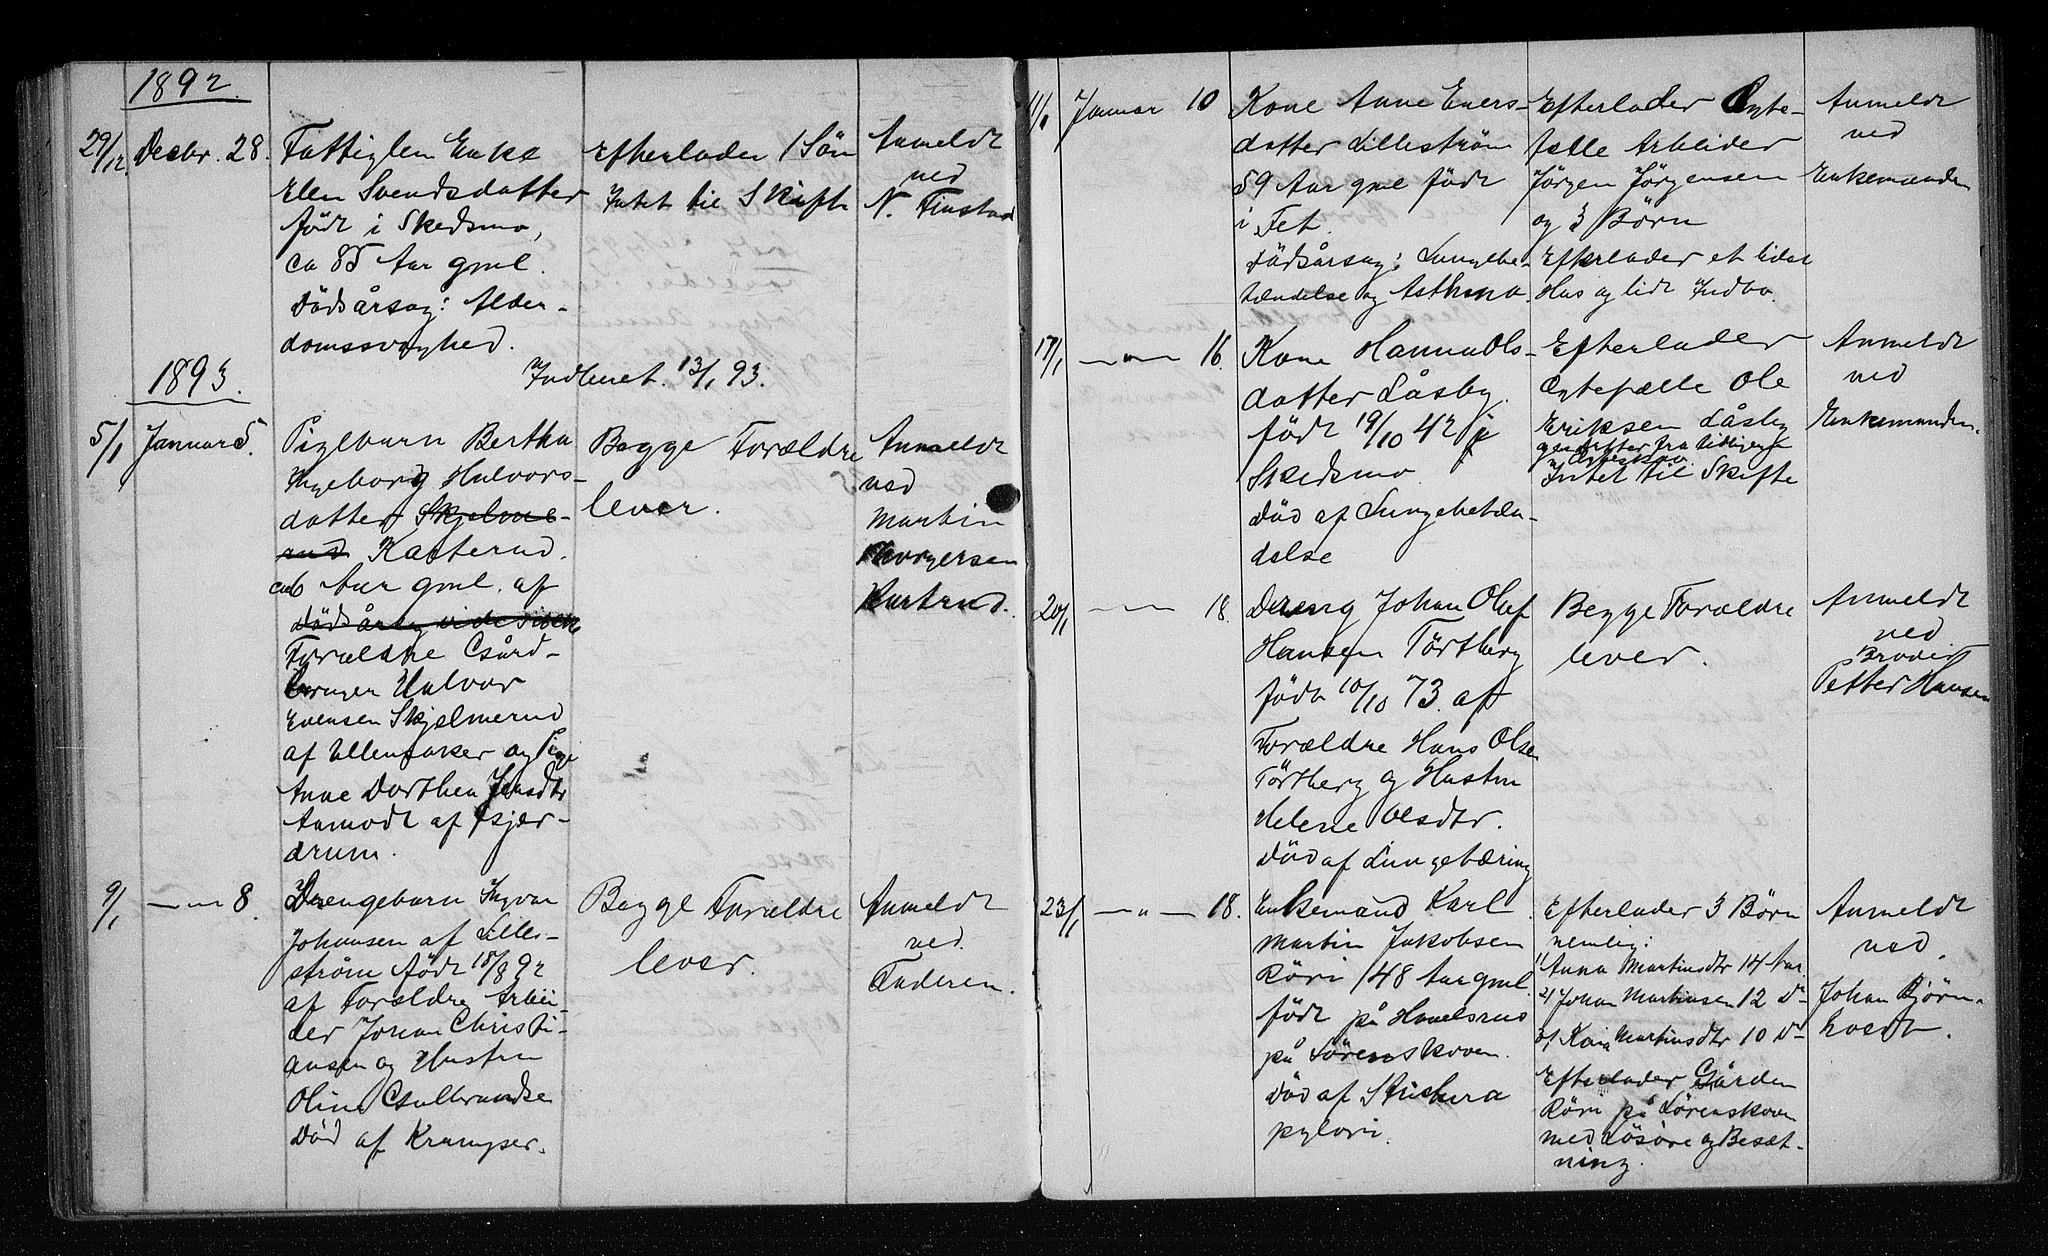 1892.
29/12 Decbr. 28. Fattiglem Enke
Ellen Svendsdatter
född i Skedsmo,
ca 85 Aar gml.
Dödsårsag: Alder-
domssvaghed.
Efterlader 1 Sön
Intet til Skifte
Anmeldt
ved
N. Finstad
Indberet. 13/1 93.
1893.
5/1 Januar 5. Pigebarn Bertha
Ingeborg Halvors-
datter Skjelme-
rud Kasterud.
ca 6 Aar gml. af
Dödsårsag
Forældre Gård-
bruger Halvor
Evensen Skjelmerud
af Ullensaker og Pige
Anne Dorthea Jensdtr
Aamodt af Gjer-
drum.
Begge Forældre
lever.
Anmeldt
ved
Martin
Thorgersen
9/1 —"— 8. Drengebarn Ingvar
Johansen af Lille-
ström född 18/8 92
af Forældre Arbei-
der Johan Christi-
ansen og Hustru
Oline Gulbrandse
Död af Kramper.
Begge Forældre
lever.
Anmeldt
ved
Faderen.
11/1 Januar 10 Kone Anne Evers-
datter Lilleström
59 Aar gml födt
i Fet.
Dödsårsag: Lungebe-
tændelse og Asthma
Efterlader Ægte-
fælle Arbeider
Jörgen Jörgensen
og 3 Börn
Efterlader et lidet
Hus og lidt Indbo.
Anmeldt
ved
Enkemanden
17/1 —"— 16. Kone Hanna Ols-
datter Låsby.
födt 19/10 42 i
Skedsmo
Död af Lungebetæn-
delse
Efterlader
Ægtefælle Ole
Eriksen Låsby
Intet til Skifte
Anmeldt
ved
Enkemanden.
20/1 —"— 18. Dreng Johan Olaf
Hansen Törtberg
född 10/10 73. af
Forældre Hans Olsen
Törtberg og Hustru
Helene Olsdtr.
Död af Lungetæring
Begge Forældre
lever.
Anmeldt
ved
Broder
Petter Hansen
23/1 —"— 18. Enkemand Karl
Martin Jakobsen
Röri 48 Aar gml.
född på
på Lörenskoven.
Död af Strictura
pylori.
Efterlader 3 Börn
nemlig:
1) Anna Martinsdtr 14 Aar.
2) Johan Martinsen 12 do
3) Martinsdtr 10 do
Efterlader Gården
Röri på Lörenskoven
med Lösöre og Besæt-
ning.
Anmeldt
ved.
Johan Bjørn-
holdt.